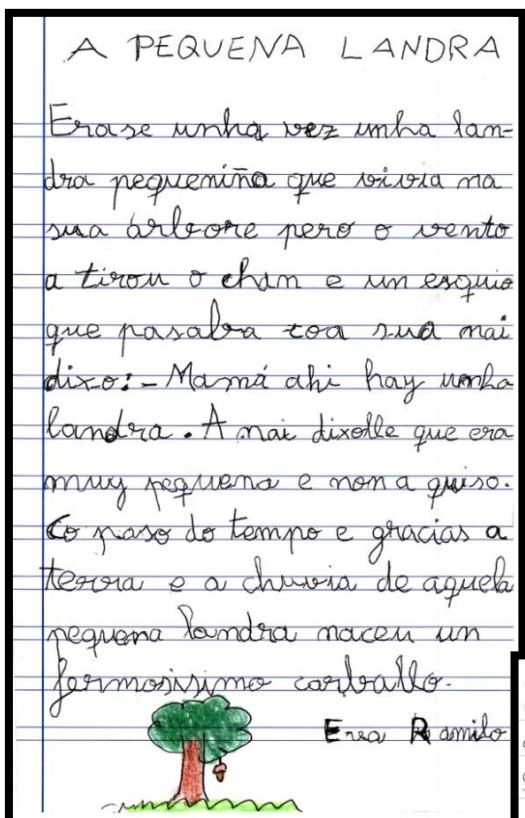 A PEQUENA LANDRA
Erase unha vez unha lan-
dra pequeniña que vivia na
sua árbore pero o vento
a tirou o chan e un esquio
que pasaba coa sua nai
dixo: - Mamá ahi hay unha
landra. A nai dixolle que era
muy pequena e non a quiso.
Co paso do tempo e gracias a
terra e a chuvia de aquela
pequena landra naceu un
fermosisimo carballo.
Ramilo